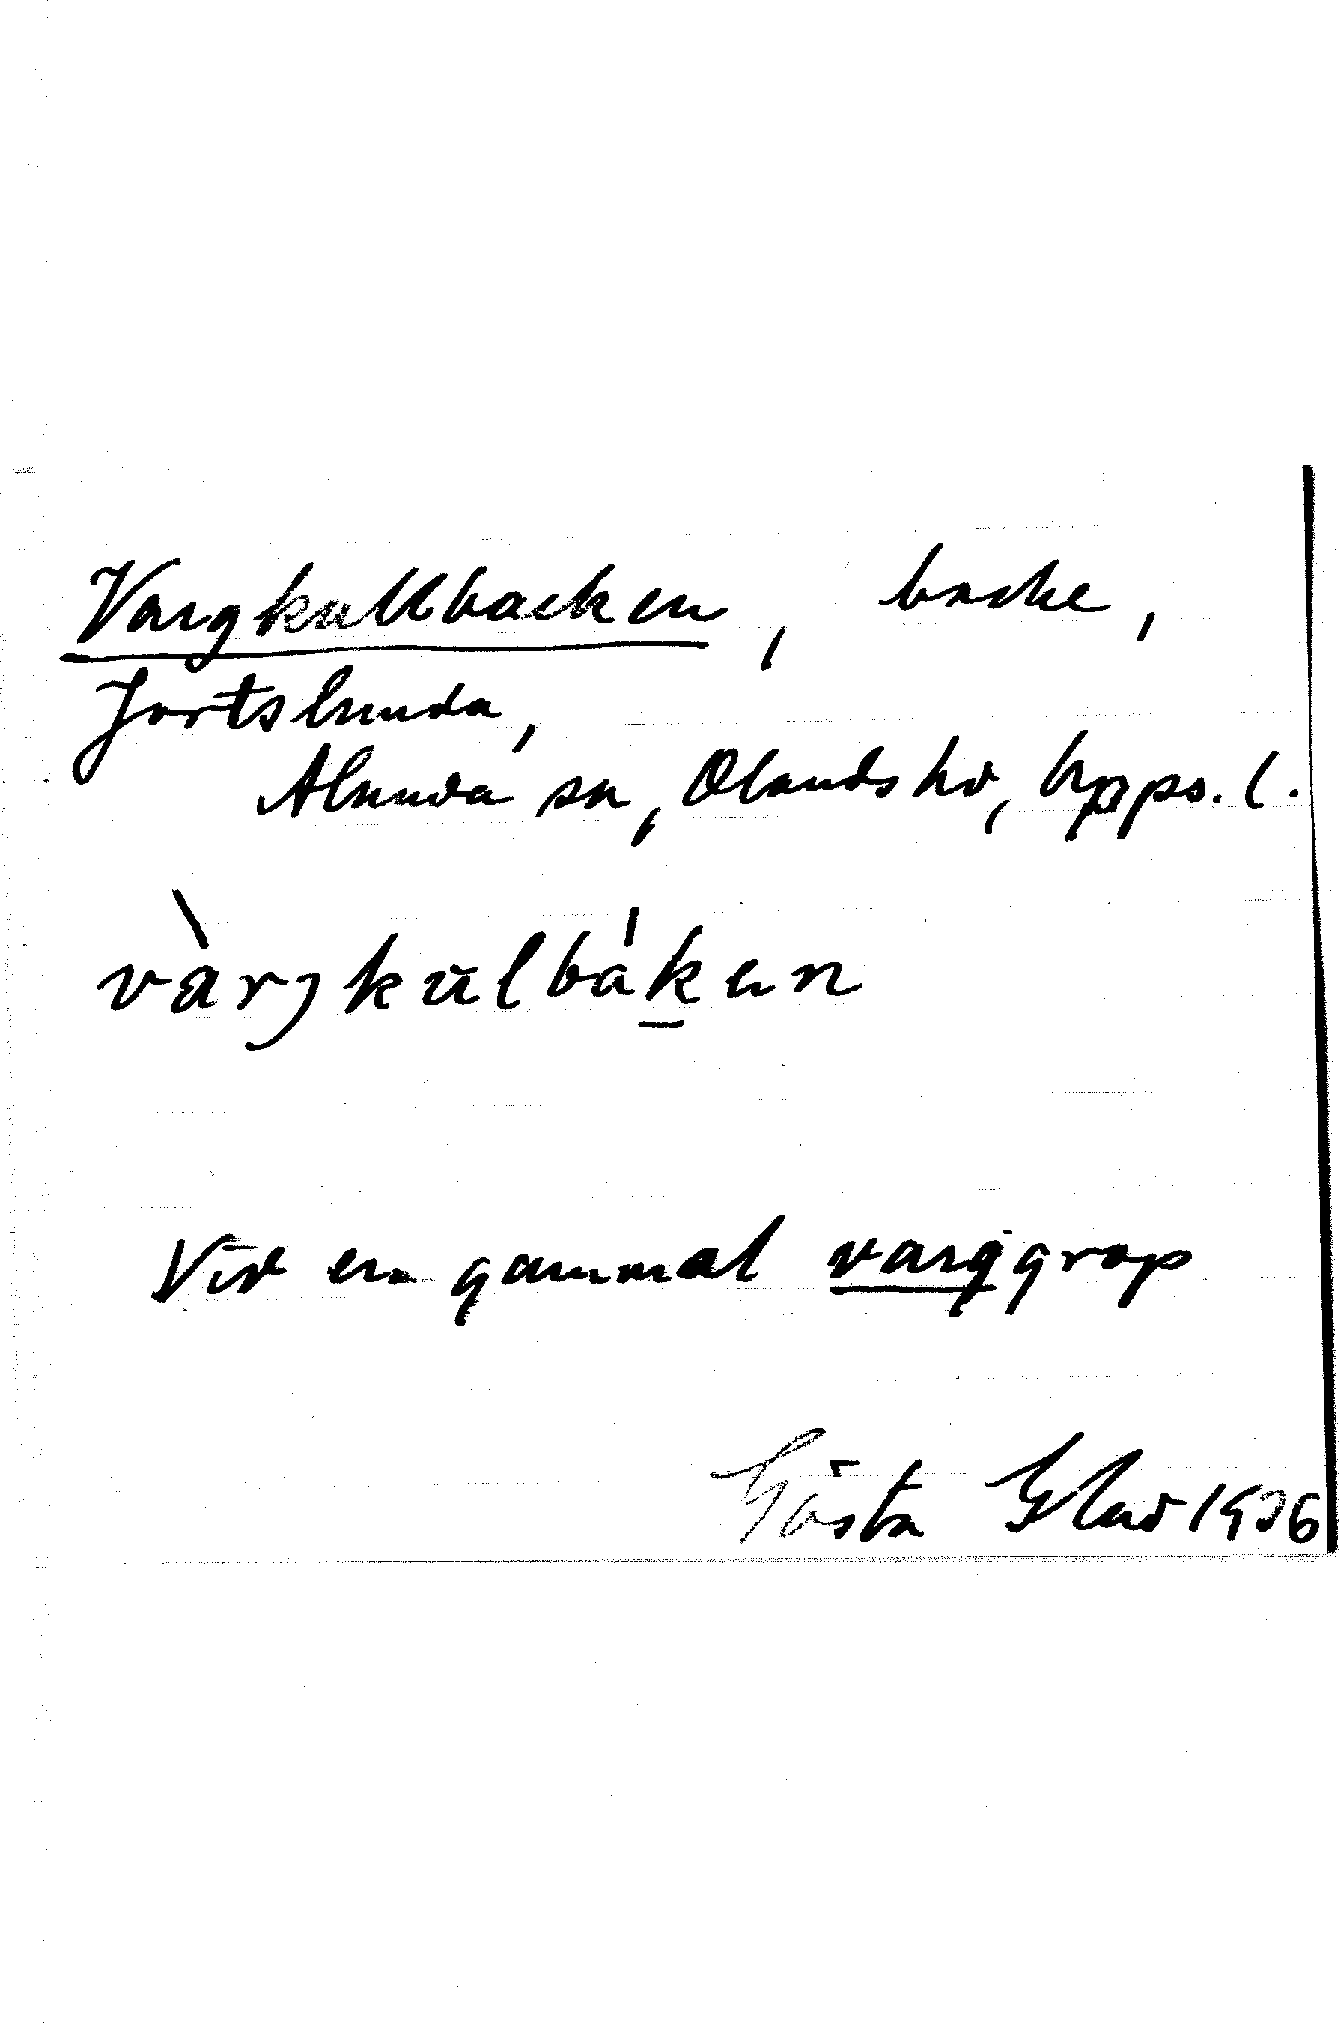 Vargkullbacken, backe,
Jortslunda,
Alunda sn, Olands hd, Upps. l.
vàrjkulbákan
Vid en gammal varggrop
Gösta Glad 1936